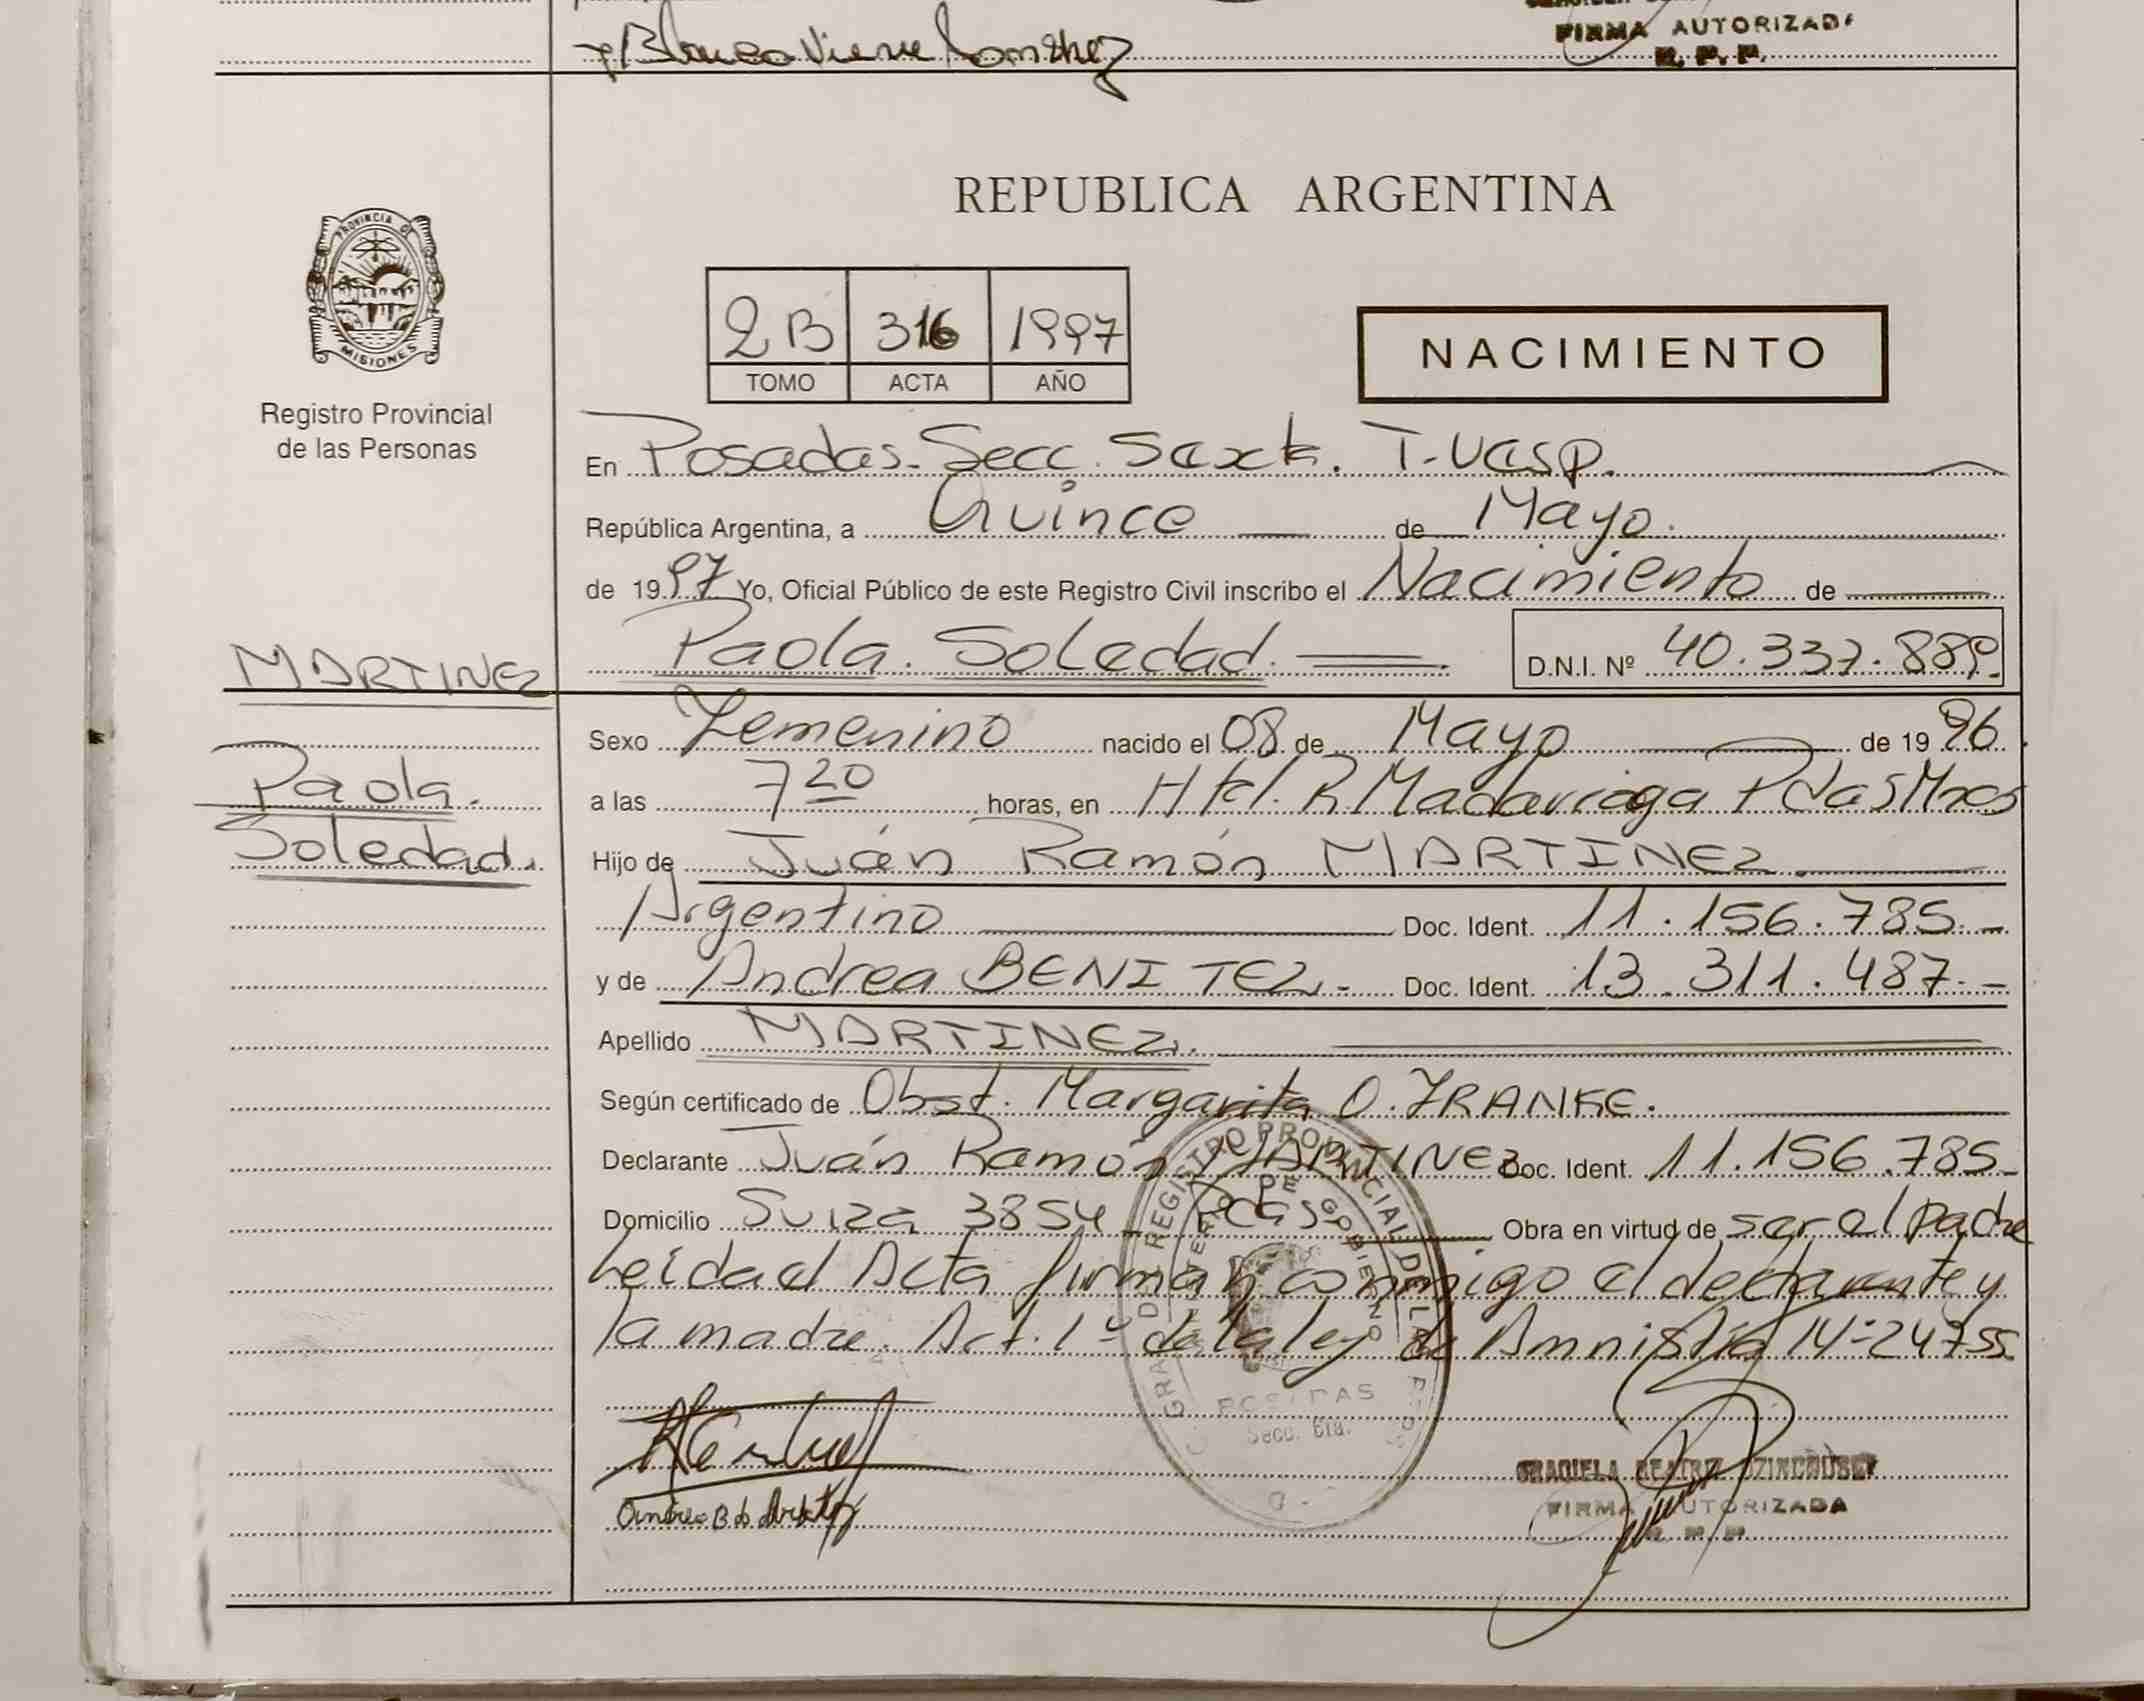 Blanca Viera Sanchez
FIRMA AUTORIZADA
R. P. P.
REPUBLICA ARGENTINA
PROVINCIA DE
MISIONES
Registro Provincial
de las Personas
2B 316 1997
TOMO ACTA AÑO
NACIMIENTO
En Posadas. Secc. Sexta. T. Vesp.
República Argentina, a Quince de Mayo.
de 1997 Yo, Oficial Público de este Registro Civil inscribo el Nacimiento de
Paola. Soledad. D.N.I. Nº 40.337.889.
MARTINEZ
Paola.
Soledad.
Sexo Femenino nacido el 08 de Mayo de 1996.
a las 7 20 horas, en Htal. R. Madariaga Pdas Mnes
Hijo de Juán Ramón MARTINEZ.
Argentino Doc. Ident. 11.156.785.-
y de Andrea BENITEZ.- Doc. Ident. 13.311.487.-
Apellido MARTINEZ.
Según certificado de Obst. Margarita O. FRANKE.
Declarante Juán Ramón MARTINEZ Doc. Ident. 11.156.785-
Domicilio Suiza 3854 Pdas. Obra en virtud de ser el padre
Leída el Acta firman conmigo el declarante y
la madre. Art. 1º de la ley de Amnistía Nº 24755.
REGISTRO PROVINCIAL DE LAS
DE GOBIERNO
POSADAS
Secc. 6ta.
GRACIELA BEATRIZ
FIRMA AUTORIZADA
R. P. P.